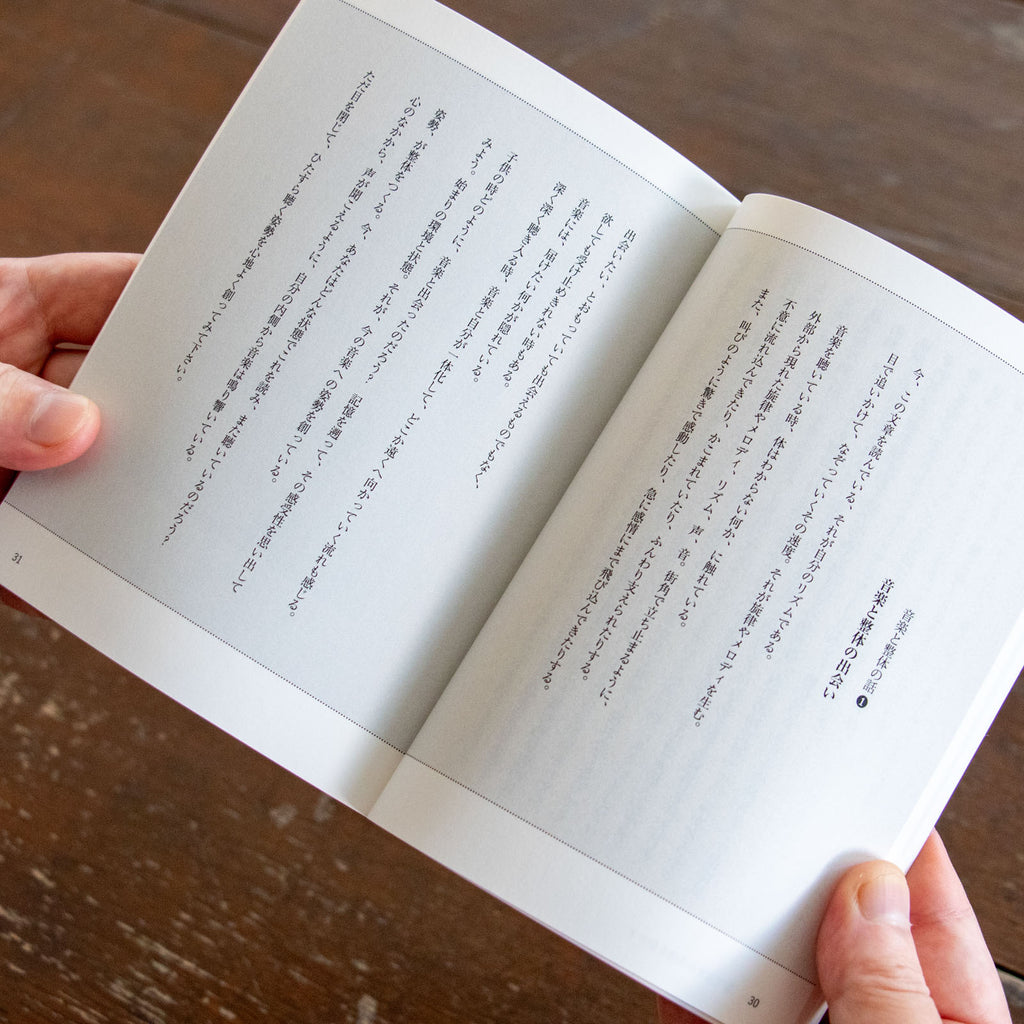 音楽と整体の話❶
音楽と整体の出会い
今、この文章を読んでいる、それが自分のリズムである。
目で追いかけて、なぞっていくその速度。それが旋律やメロディを生む。
音楽を聴いている時、体はわからない何か、に触れている。
外部から現れた旋律やメロディ、リズム、声、音。街角で立ち止まるように、
不意に流れ込んできたり、かこまれていたり、ふんわり支えられたりする。
また、叫びのように驚きで感動したり、急に感情にまで飛び込んできたりする。
30
出会いたい、とおもっていても出会えるものでもなく、
欲しても受け止めきれない時もある。
音楽には、届けたい何かが隠れている。
深く深く聴き入る時、音楽と自分が一体化して、どこか遠くへ向かっていく流れも感じる。
子供の時どのように、音楽と出会ったのだろう？　記憶を遡って、その感受性を思い出して
みよう。始まりの環境と状態。それが、今の音楽への姿勢を創っている。
姿勢、が整体をつくる。今、あなたはどんな状態でこれを読み、また聴いているのだろう？
心のなかから、声が聞こえるように、自分の内側から音楽は鳴り響いている。
ただ目を閉じて、ひたすら聴く姿勢を心地よく創ってみて下さい。
31